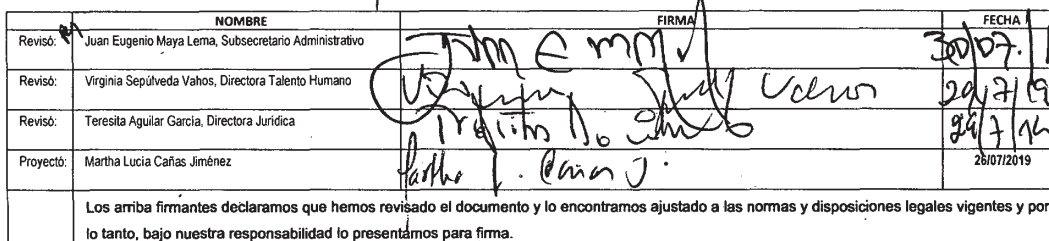 NOMBRE FIRMA FECHA
Revisó: Juan Eugenio Maya Lema, Subsecretario Administrativo 30/07.
Revisó: Virginia Sepúlveda Vahos, Directora Talento Humano Vahos 29/7/19
Revisó: Teresita Aguilar Garcia, Directora Jurídica 29/7/
Proyectó: Martha Lucia Cañas Jiménez Martha L. Cañas J. 26/07/2019
Los arriba firmantes declaramos que hemos revisado el documento y lo encontramos ajustado a las normas y disposiciones legales vigentes y por
lo tanto, bajo nuestra responsabilidad lo presentamos para firma.